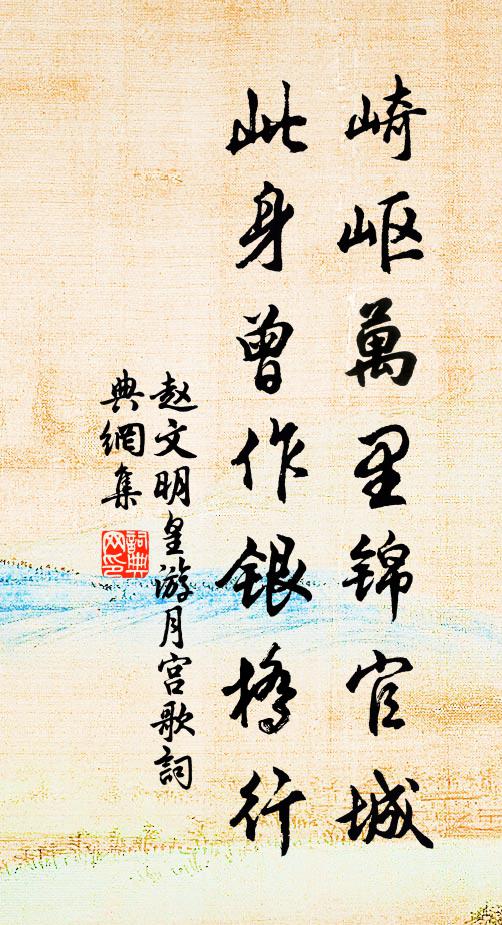 崎岖萬里锦官城
此身曾作银橋行
赵文明皇游月宫歌詞
典網集
詞典
网印